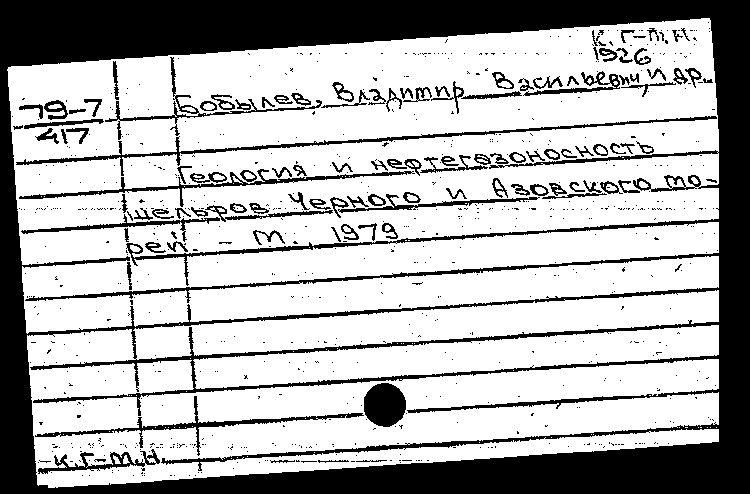 К. Г-М. Н.
1926
79-7
417
Бобылев, Владимир Васильевич, и др.
Геология и нефтегазоносность
шельфов Черного и Азовского мо-
рей. - М., 1979
К. Г-М. Н.